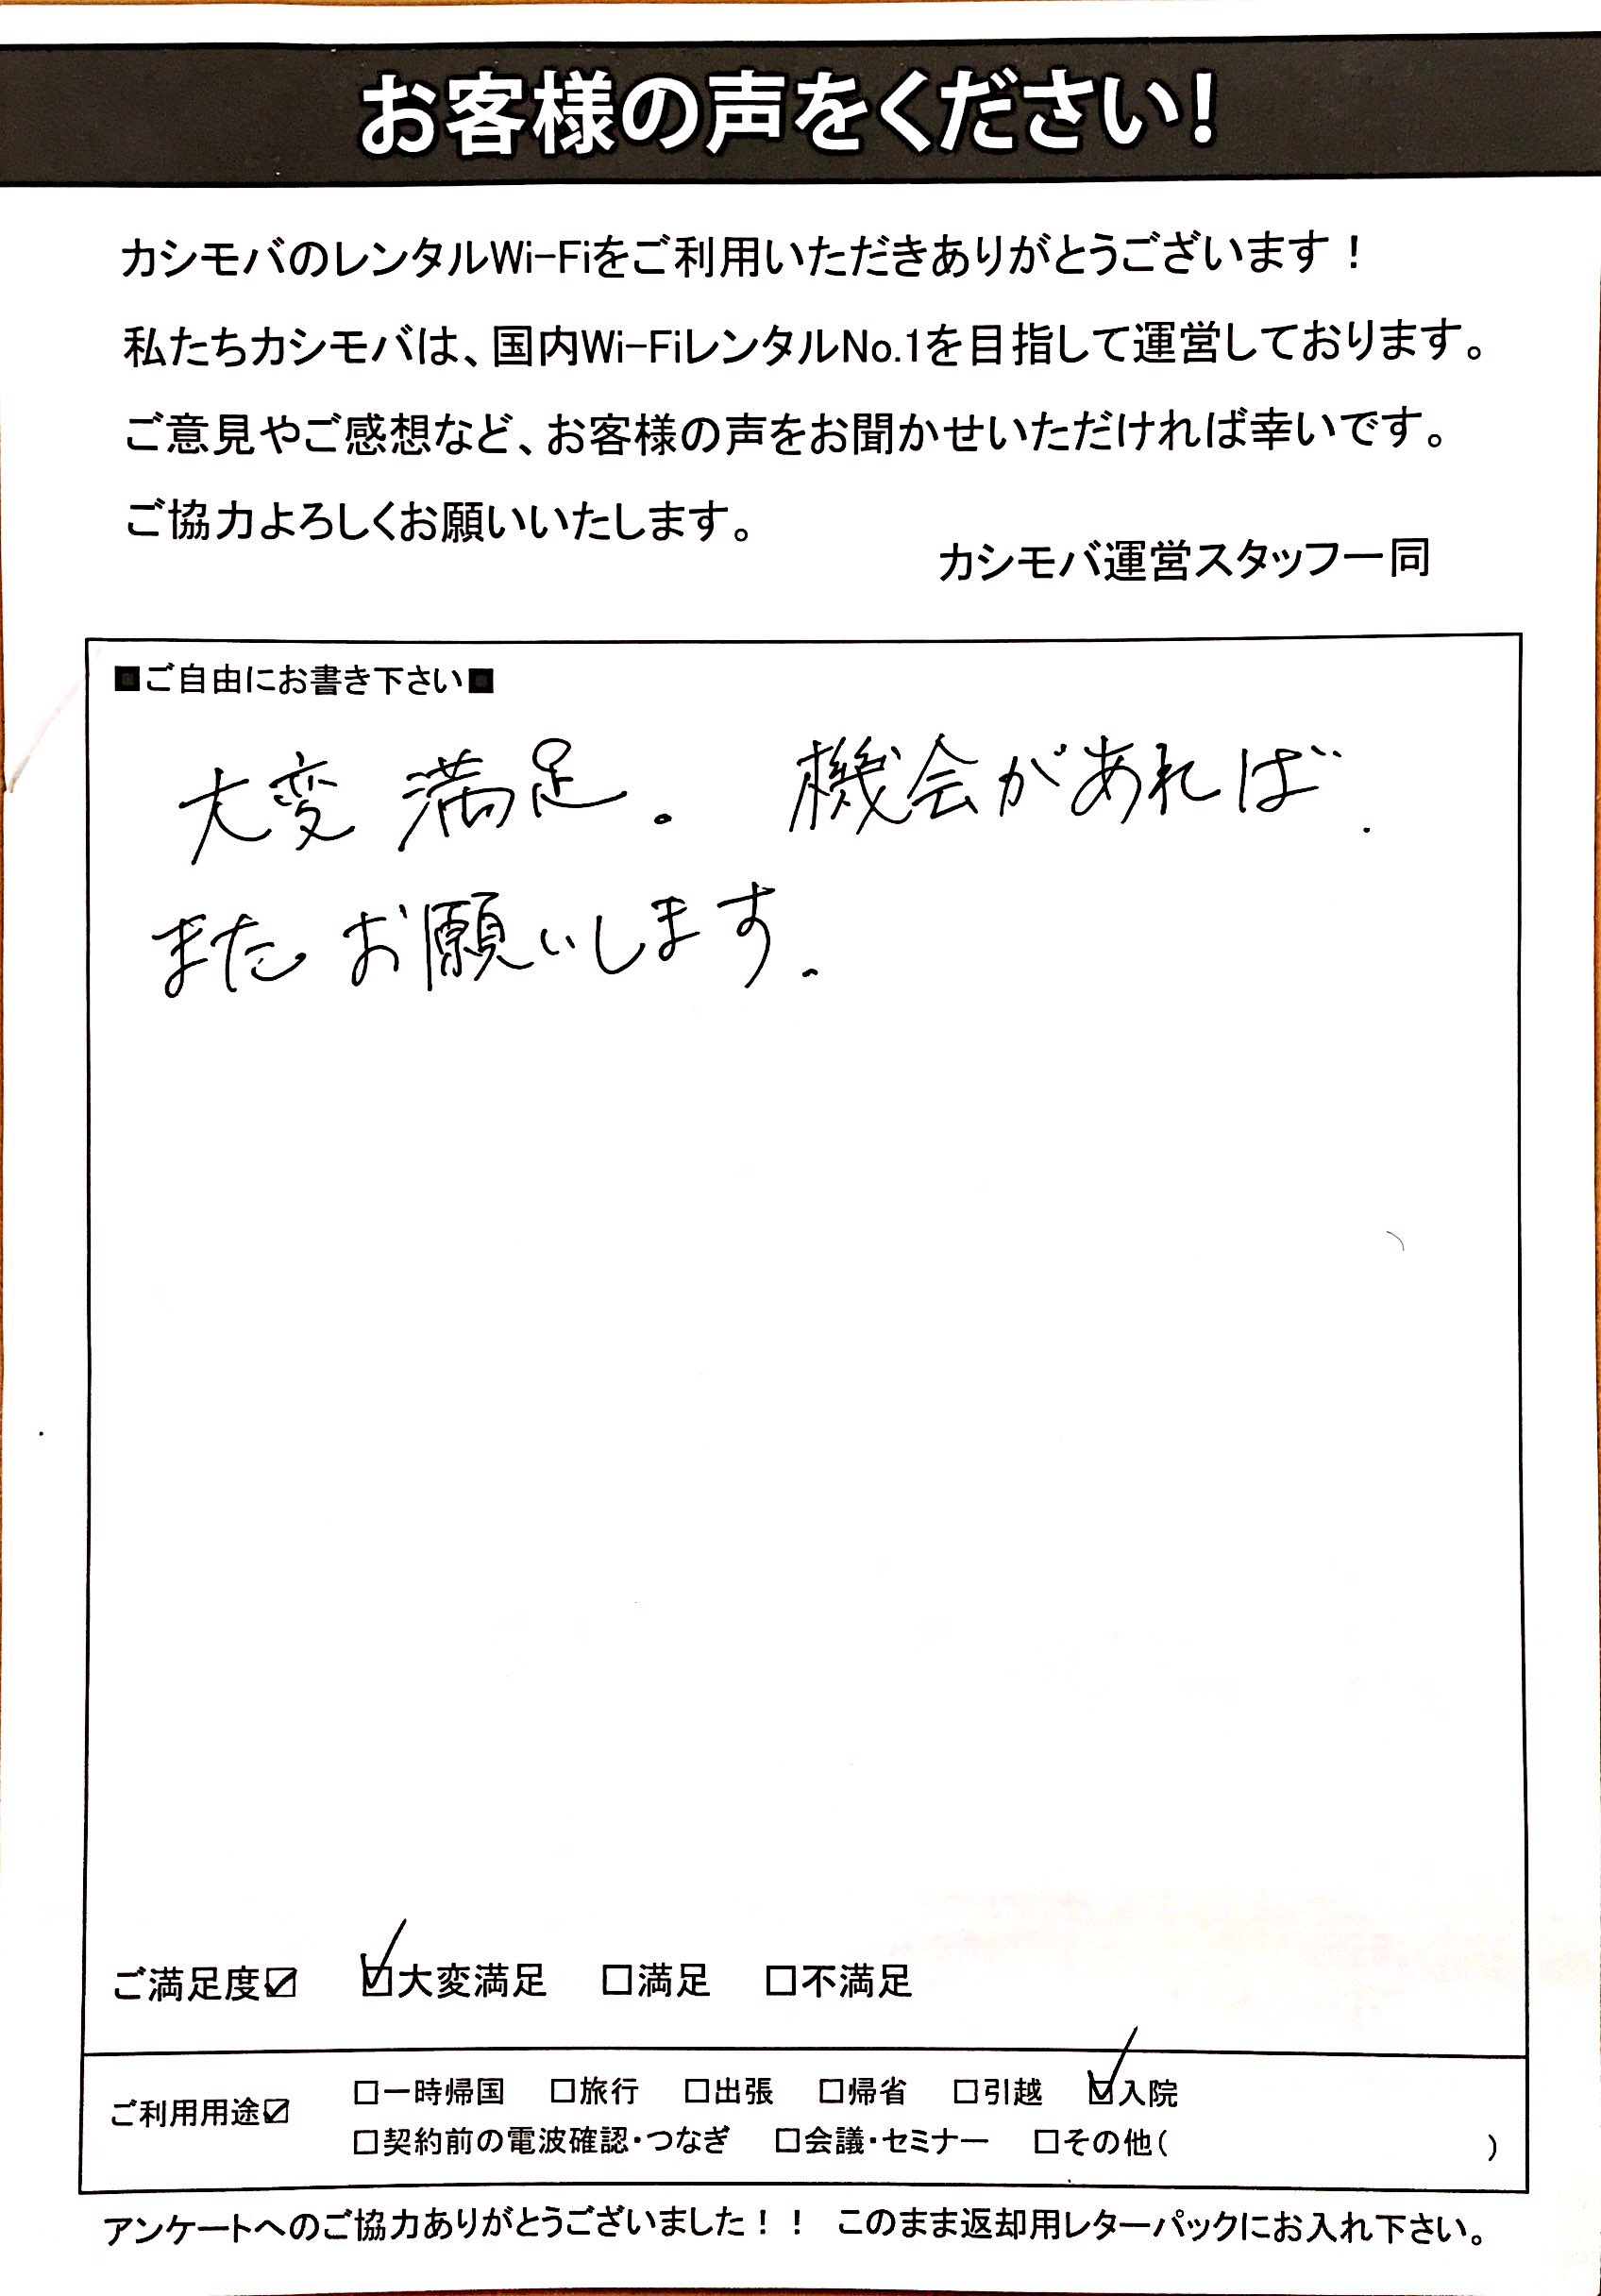 お客様の声をください!
カシモバのレンタルWi-Fiをご利用いただきありがとうございます!
私たちカシモバは、国内Wi-FiレンタルNo.1を目指して運営しております。
ご意見やご感想など、お客様の声をお聞かせいただければ幸いです。
ご協力よろしくお願いいたします。
カシモバ運営スタッフ一同
■ご自由にお書き下さい■
大変 満足。 機会があれば.
また お願いします.
ご満足度☑ ☑大変満足 □満足 □不満足
ご利用用途☑ □一時帰国 □旅行 □出張 □帰省 □引越 ☑入院
□契約前の電波確認・つなぎ □会議・セミナー □その他( )
アンケートへのご協力ありがとうございました!! このまま返却用レターパックにお入れ下さい。